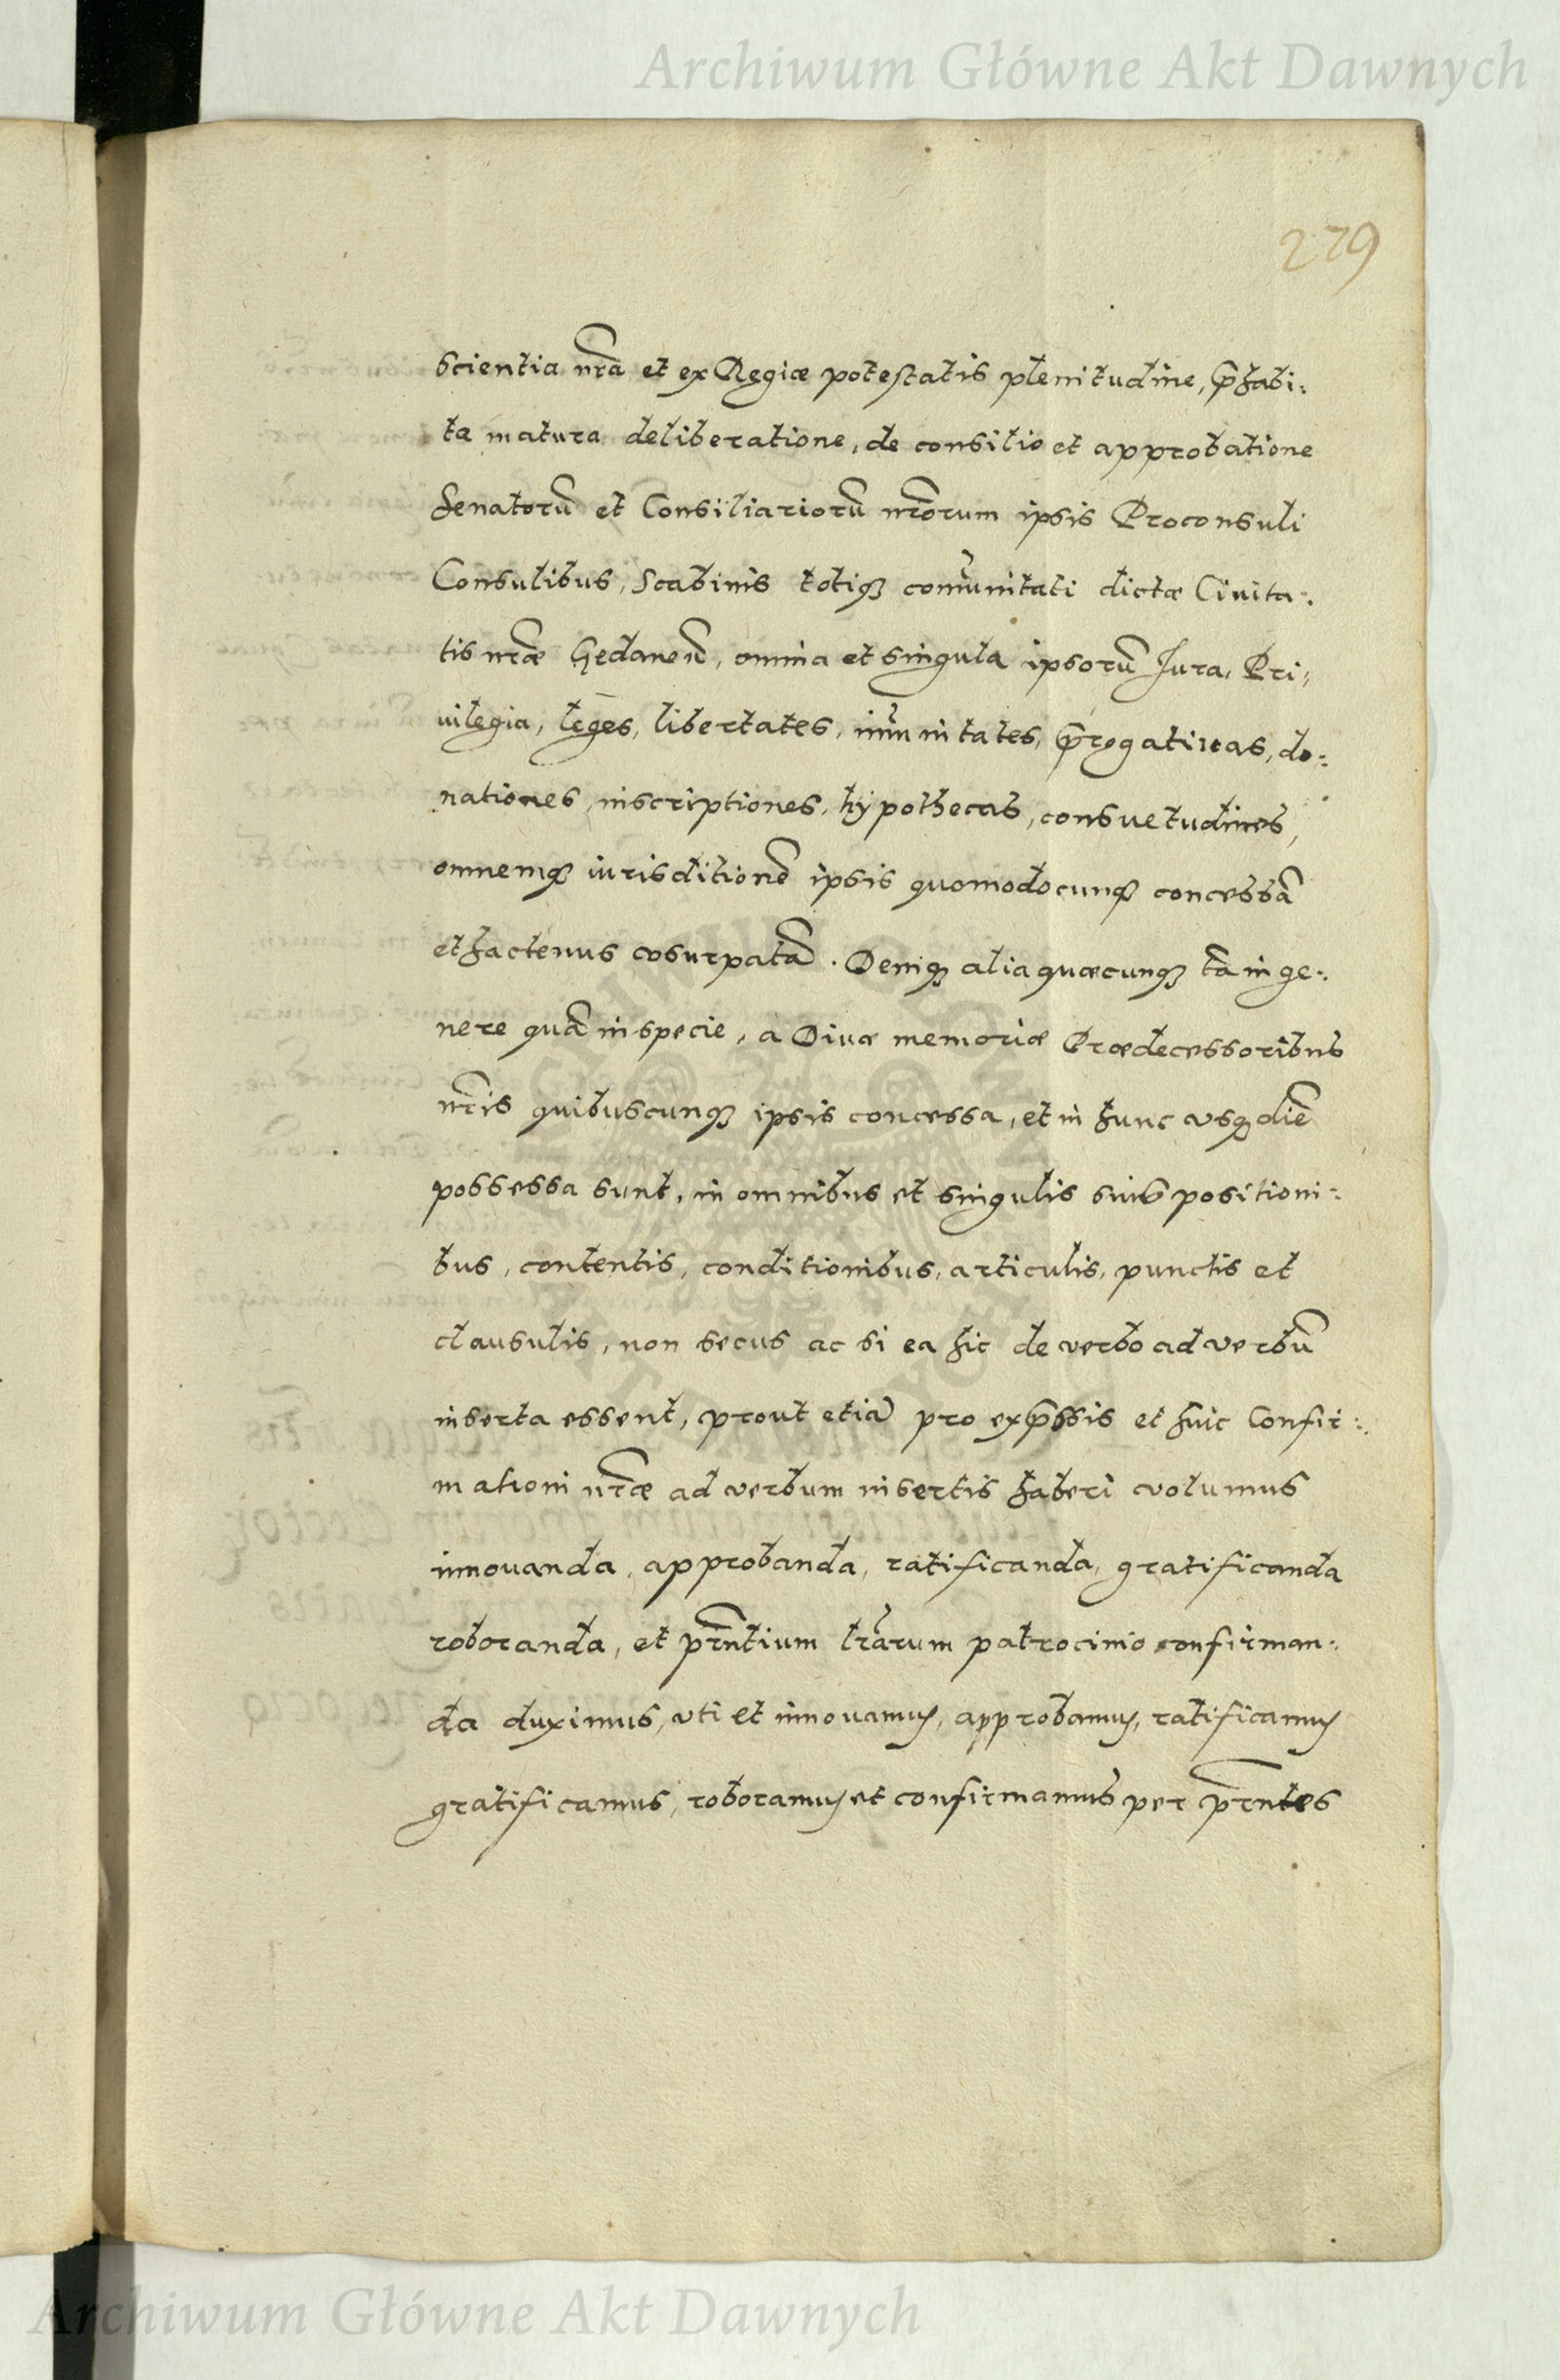 Archiwum Główne Akt Dawnych
279
scientia nr̃a et ex Regiæ potestatis plenitudine, p̃habi:
ta matura deliberatione, de consilio et approbatione
Senatorũ et Consiliariorũ nrõrum ipsis Proconsuli
Consulibus, Scabinis totiqȝ com̃unitati dictæ Ciuita:
tis nr̃æ Gedaneñ, omnia et singula ipsorũ Jura, Pri:
uilegia, leges, libertates, im̃unitates, p̃rogatiuas, do:
nationes, inscriptiones, hÿpothecas, consuetudines,
omnemqȝ iurisditionẽ ipsis quomodocunqȝ concessã
et hactenus vsurpatã. Deniqȝ alia quæcunqȝ tã in ge:
nere quã in specie, a Diuæ memoriæ Prædecessoribus
nr̃is quibuscunqȝ ipsis concessa, et in hunc vsqȝ diẽ
possessa sunt, in omnibus et singulis suis positioni:
bus, contentis, conditionibus, articulis, punctis et
clausulis, non secus ac si ea hic de verbo ad verbũ
inserta essent, prout etiã pro exp̃ssis et huic Confir:
mationi nr̃æ ad verbum insertis haberi volumus
innouanda, approbanda, ratificanda, gratificanda
roboranda, et pr̃ntium lr̃arum patrocinio confirman:
da duximus, vti et innouamus, approbamus, ratificamus
gratificamus, roboramus et confirmamus per pr̃ntes
Archiwum Główne Akt Dawnych